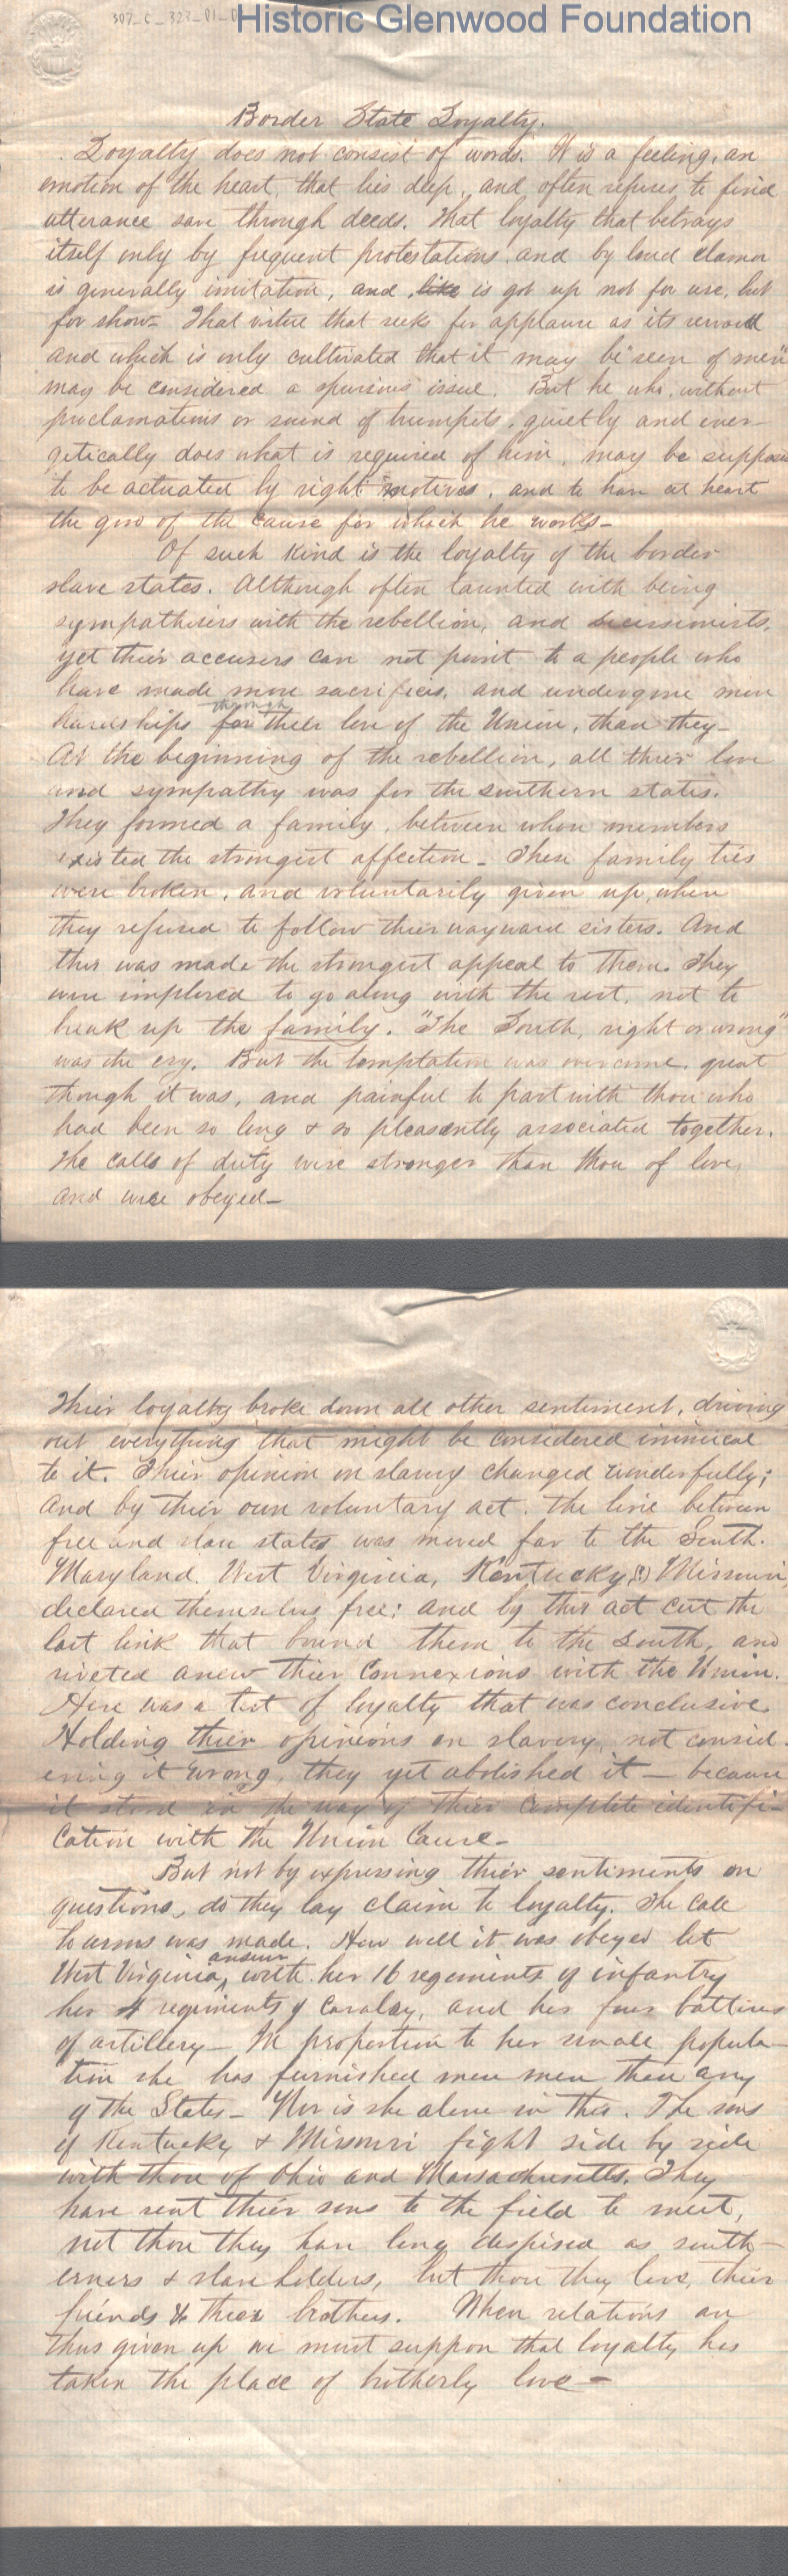 307_C_323_01_0
Historic Glenwood Foundation
Border State Loyalty.
Loyalty does not consist of words. It is a feeling, an
emotion of the heart, that lies deep, and often refuses to find
utterance save through deeds. That loyalty that betrays
itself only by frequent protestations and by loud clamor
is generally imitation, and like is got up not for use, but
for show. That virtue that seeks for applause as its reward
and which is only cultivated that it may be "seen of men"
may be considered a spurious issue. But he who, without
proclamations or sound of trumpets, quietly and ener-
getically does what is required of him, may be suppose
to be actuated by right motives, and to have at heart
the good of the cause for which he works-
Of such kind is the loyalty of the border
slave states. Although often taunted with being
sympathisers with the rebellion, and secessionists,
yet their accusers can not point to a people who
have made more sacrifices, and undergone more
through
hardships for their love of the Union, than they-
At the beginning of the rebellion, all thier love
and sympathy was for the southern states.
They formed a family, between whose members
existed the strongest affection- These family ties
were broken, and voluntarily given up, when
they refused to follow thier wayward sisters. And
this was made the strongest appeal to them. They
were implored to go along with the rest, not to
break up the family. "The South, right or wrong"
was the cry. But the temptation was overcome, great
though it was, and painful to part with those who
had been so long & so pleasantly associated together.
The calls of duty were stronger than those of love,
and were obeyed-
Thier loyalty broke down all other sentiment, driving
out everything that might be considered inimical
to it. Thier opinion on slavery changed wonderfully;
And by thier own voluntary act, the line between
free and slave states was moved far to the South.
Maryland, West Virginia, Kentucky(?) Missouri,
declared themselves free; and by this act cut the
last link that bound them to the South, and
riveted anew thier connexions with the Union.
Here was a test of loyalty that was conclusive.
Holding thier opinions on slavery, not consid-
ering it wrong, they yet abolished it - because
it stood in the way of thier complete identifi-
cation with the Union Cause-
But not by expressing thier sentiments on
questions, do they lay claim to loyalty. The call
to arms was made. How well it was obeyed let
answer
West Virginia, with her 16 regiments of infantry
her 4 regiments of cavalry, and her four batteries
of artillery- In proportion to her small popula-
tion she has furnished more men than any
of the States- Nor is she alone in this. The sons
of Kentucky & Missouri fight side by side
with those of Ohio and Massachusetts. They
have sent thier sons to the field to meet,
not those they have long despised as south-
erners & slave holders, but those they love, thier
friends & thier brothers. When relations are
thus given up we must suppose that loyalty has
taken the place of brotherly love-